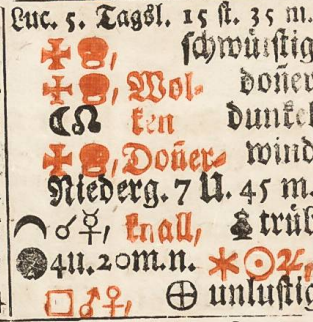 Luc. 5. Tagsl. 15 st. 35 m.
schwülstig
Wol- doñer
☾☊ ken dunkel
Doñer- wind
Niederg. 7 U. 45 m.
☌☿, knall, trüb
4u.20m.n. ✶☉♃,
□♂♀, ⊕ unlustig